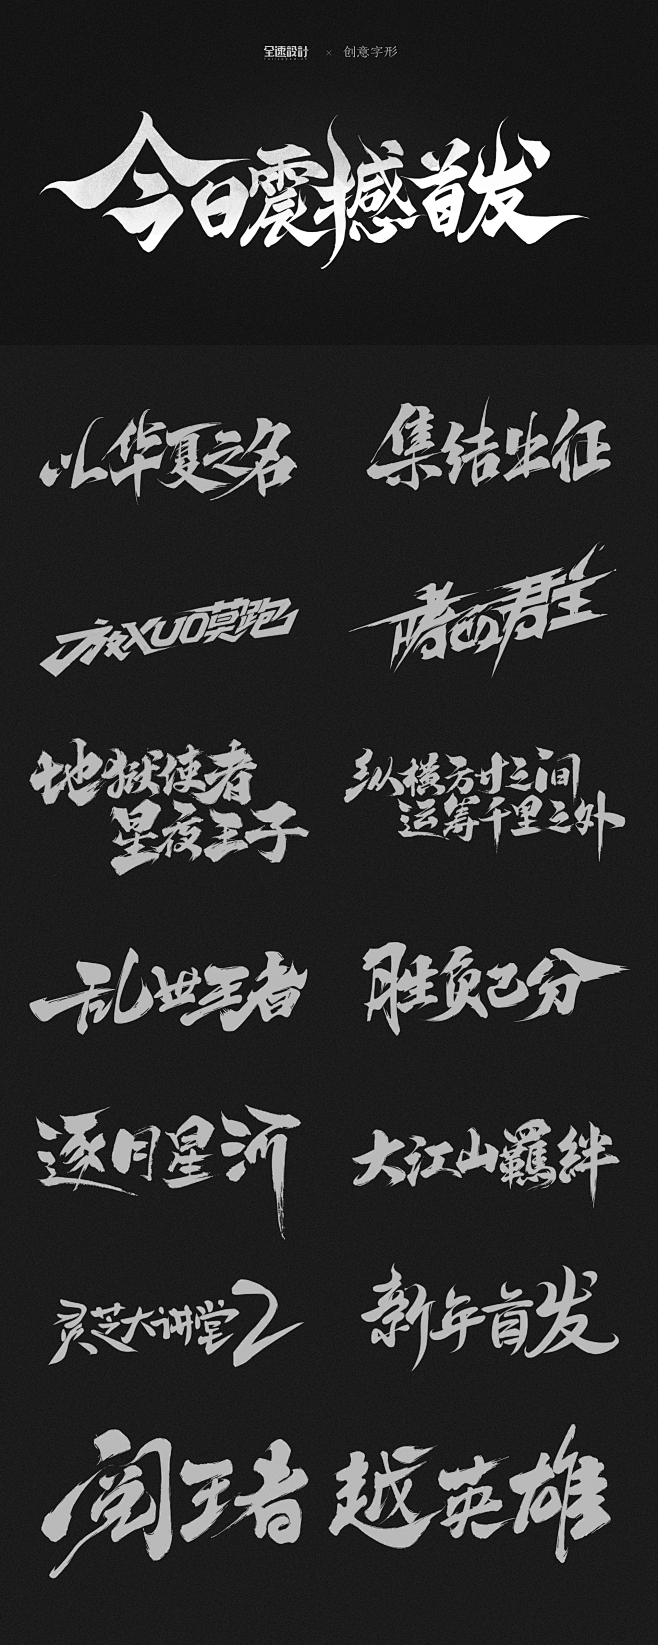 全速設計 × 创意字形
今日震撼首发
以华夏之名
集结出征
放XUO莫跑
君主
地狱使者
星夜王子
纵横方寸之间
运筹千里之外
乱世王者
胜负已分
逐月星河
大江山羁絆
灵芝大讲堂2
新年首发
阅王者
越英雄